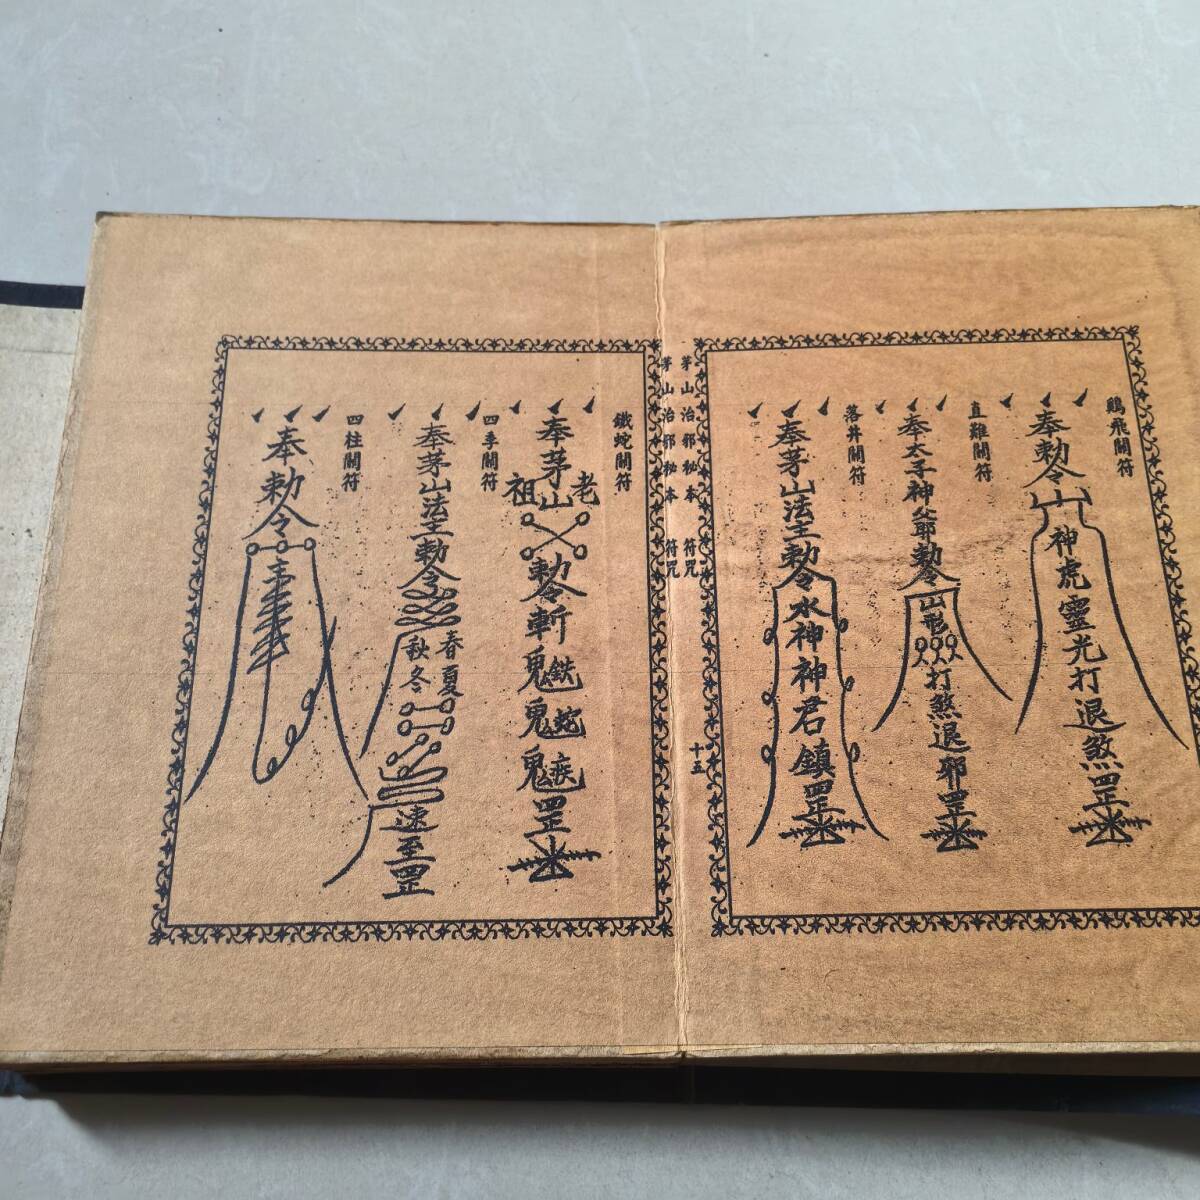 鷄飛關符
奉勅令
山
神虎靈光打退煞罡
直難關符
奉太子神爺勅令
山形
打煞退邪罡
落井關符
奉茅山法主勅令
水神神君鎮罡
茅山治邪秘本 符咒
十五
茅山治邪秘本 符咒
鐵蛇關符
奉茅山
祖 老
勅令斬
鬼鉄
鬼蛇
鬼疾
罡
四季關符
奉茅山法主勅令
春夏
秋冬
速至罡
四柱關符
奉勅令